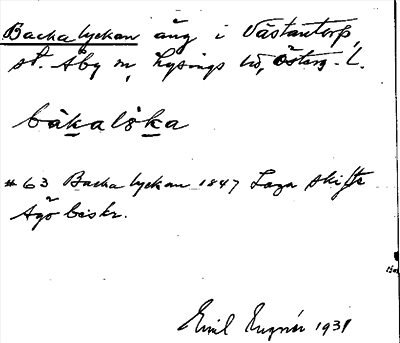 Backalyckan äng i Västantorp,
st. Åby sn, Lysings hd, Österg. L.
båkalöka
#63 Backalyckan 1847 Laga skifte
ägobeskr.
Emil 1931